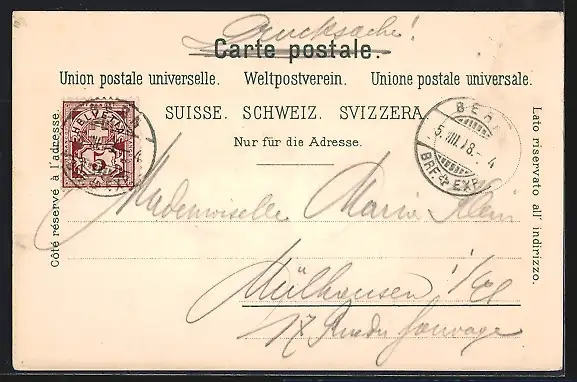 Drucksache!
Carte postale.
Union postale universelle. Weltpostverein. Unione postale universale.
SUISSE. SCHWEIZ. SVIZZERA
Nur für die Adresse.
Côté réservé à l'adresse.
Lato riservato all' indirizzo.
HELVETIA
5
BERN
BRF. EXP.
Mademoiselle Marie Klein
Mülhausen i/Els
17 Rue du Sauvage